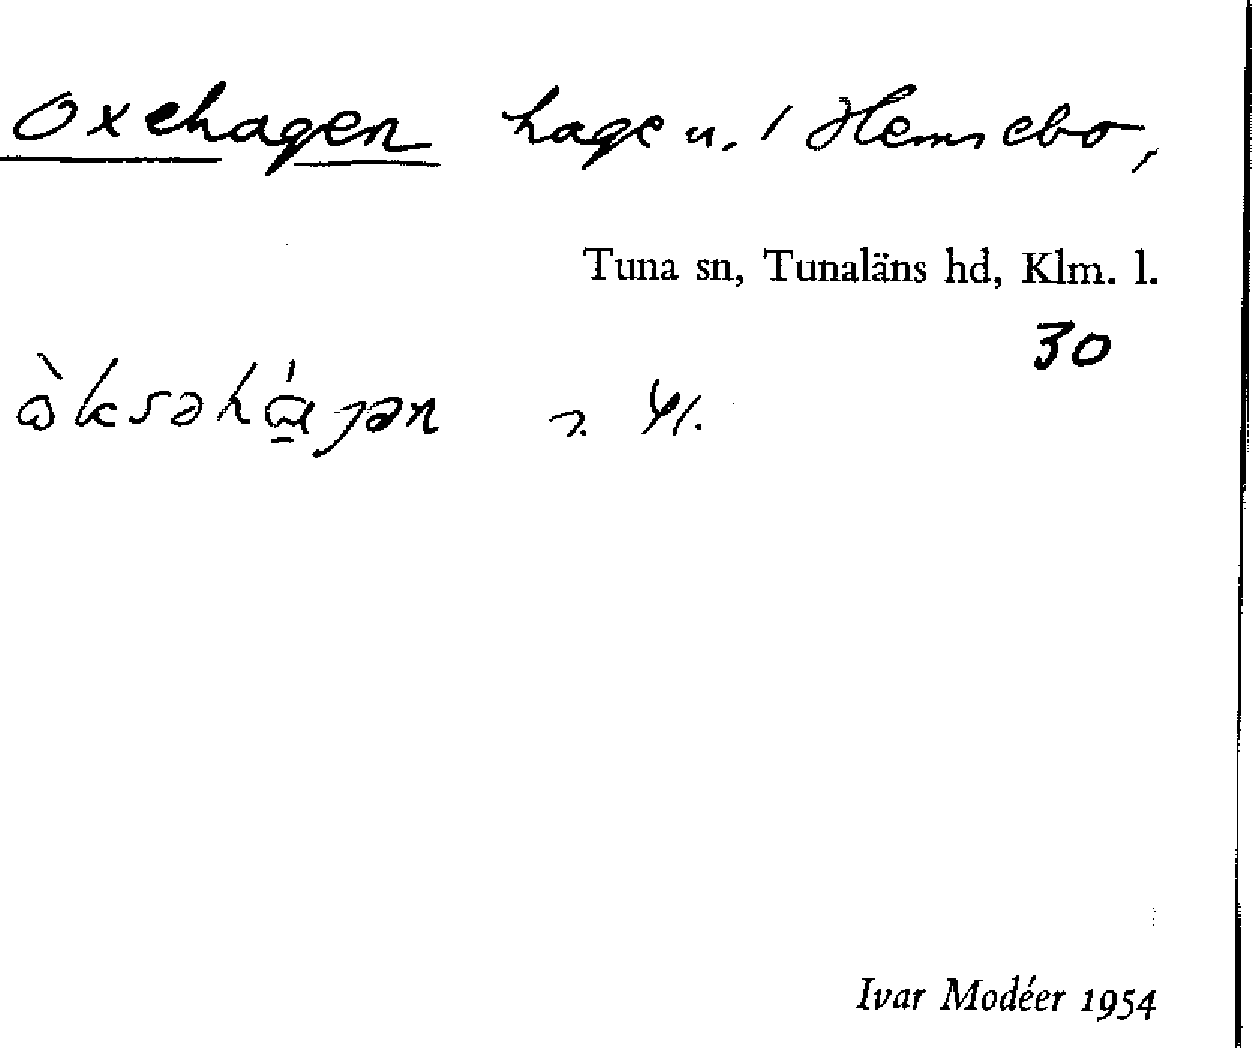 Oxehagen hage u. / Hemsebo,
Tuna sn, Tunaläns hd, Klm. l.
30
òksəhá̱gən
Ivar Modéer 1954